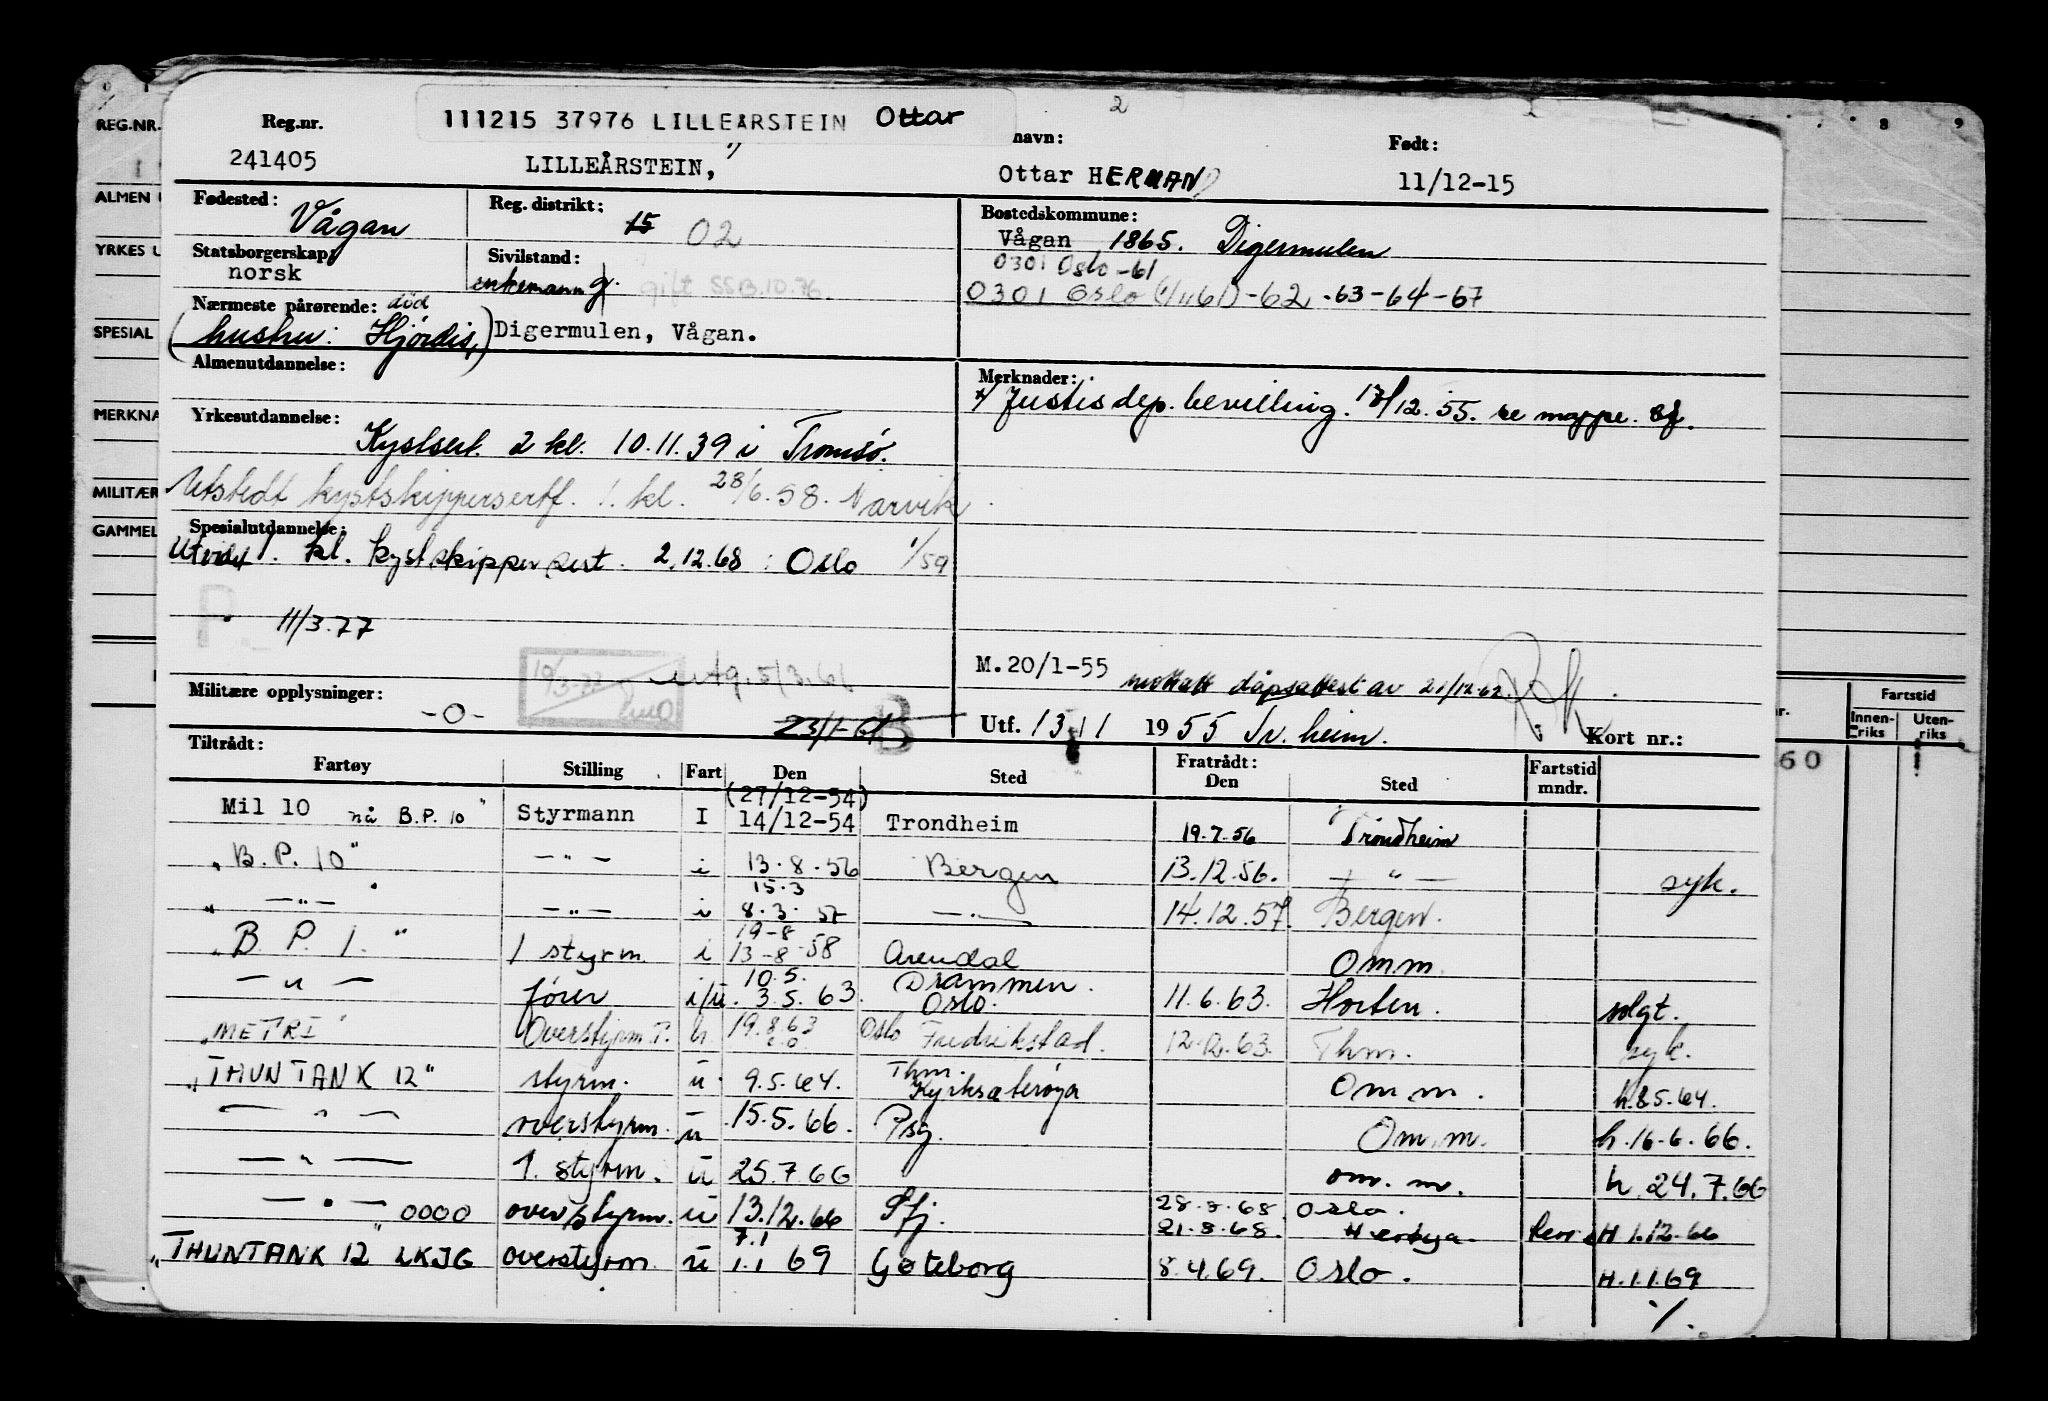 2
Reg.nr. 111215 37976 LILLEÅRSTEIN Ottar navn: Født:
241405 LILLEÅRSTEIN, 1) Ottar HERMAN 11/12-15
Fødested: Vågan Reg. distrikt: 15 02 Bostedskommune:
Vågan 1865. Digermulen
Statsborgerskap: norsk Sivilstand: enkemann g. gift SSB.10.76. 0301 Oslo -61
0301 Oslo (1/1161) -62 -63-64-67
Nærmeste pårørende: død
(hustru: Hjørdis,) Digermulen, Vågan.
Almenutdannelse: Merknader:
Justisdep. bevilling. 13/12.55. se mappe.
Yrkesutdannelse: Kystsert. 2 kl. 10.11.39 i Tromsø.
Utstedt kystskippersertf. 1. kl. 28/6.58. Narvik
Spesialutdannelse:
Utvidet 1. kl. kystskipper sert. 2.12.68 i Oslo 1/59
11/3.77
M.20/1-55 mottatt dåpsattest av 21/12-62.
utg. 5/3.61
Militære opplysninger: -0- 23/1-61 B Utf. 13/1 1955 Tr.heim. Kort nr.:
Tiltrådt: Fratrådt:
Fartøy Stilling Fart Den Sted Den Sted Fartstid mndr.
(27/12-54)
Mil 10 nå B.P. 10" Styrmann I 14/12-54 Trondheim 19.7.56 Trondheim
"B.P. 10" — " — i 13.8.56 Bergen 13.12.56. — " — syk.
15.3
— " — — " — i 8.3.57 — " — 14.12.57. Bergen.
19-8
"B. P. 1." 1 styrm. i 13-8-58 Arendal Omm
10.5. Drammen.
— " — fører i/u. 3.5.63. Oslo. 11.6.63. Horten. solgt.
"METRI" Overstyrm. T. 19.8.63 Oslo Fredrikstad. 12.12.63. Thm. syk.
"THUNTANK 12" styrm. u 9.5.64. Thm. Kyrksæterøya Om.m. h.8.5.64.
— " — overstyrm. u 15.5.66. Psg. Om.m. h.16.6.66.
— " — 1. styrm. u 25.7.66 om.m. h.24.7.66
— " — 0000 overstyrm. u 13.12.66 Sfj. 28.8.68. Oslo.
21.8.68. H 1.12.66
7.1
"THUNTANK 12" LKJG overstyrm. u 1.1 69 Gøteborg 8.4.69. Oslo. H.1.1.69
%.
REG.NR.
ALMEN U
YRKES U
SPESIAL
MERKNA
MILITÆR
GAMMEL
8 9
Fartstid
Innen-riks Uten-riks
60